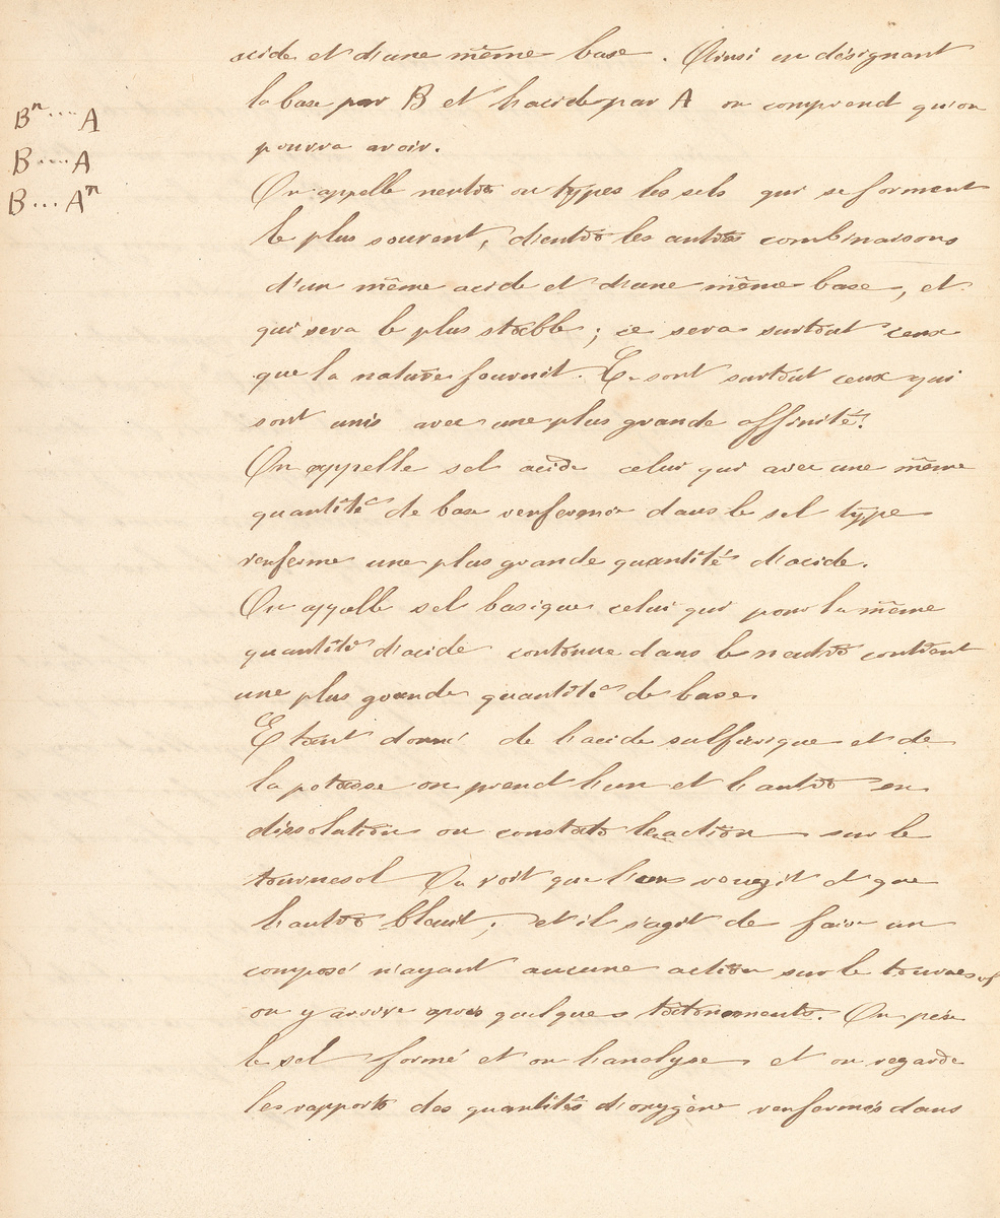 acide et d'une même base. Ainsi en désignant
la base par B et l'acide par A on comprend qu'on
pourra avoir.
Bⁿ....A
B....A
B...Aⁿ
On appelle neutre ou types les sels qui se forment
le plus souvent, d'entre les autres combinaisons
d'un même acide et d'une même base, et
qui sera le plus stable; ce sera surtout ceux
que la nature fournit. Ce sont surtout ceux qui
sont unis avec une plus grande affinité.
On appelle sel acide celui qui avec une même
quantité de base renfermée dans le sel type
renferme une plus grande quantité d'acide.
On appelle sel basique celui qui pour la même
quantité d'acide contenue dans le neutre contient
une plus grande quantité de base.
Etant donné de l'acide sulfurique et de
la potasse on prend l'un et l'autre en
dissolution on constate l'action sur le
tournesol On voit que l'un rougit et que
l'autre bleuit, et il s'agit de faire un
composé n'ayant aucune action sur le tournesol
on y arrive après quelques tâtonnements. On pèse
le sel formé et on l'analyse et on regarde
les rapports des quantités d'oxygène renfermés dans